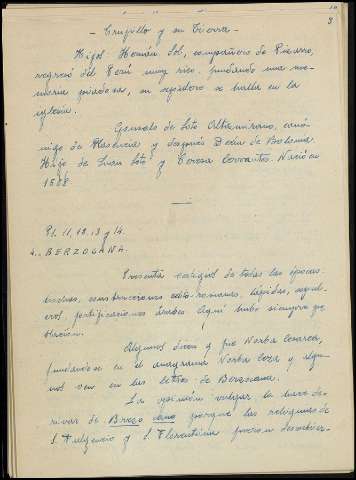 3
- Trujillo y su Tierra -
Hijos: Hernán Sol, compañero de Pizarro,
regresó del Perú muy rico, fundando una me-
moria piadosa, su sepulcro se halla en la
iglesia.
Gonzalo de Soto Altamirano, canó-
nigo de Plasencia y después Deán de
Hijo de Juan Soto y Teresa Cervantes. Nació en
1508.
Pl. 11, 12, 13 y 14.
BERZOCANA.
Presenta vestigios de todas las épocas:
celto-romanas, lápidas, sepul-
cros, fortificaciones árabes. Aquí hubo siempre po-
blación.
Algunos dicen q fue Norba Cesarea,
fundándose en el anagrama Norba Ceza y algu-
nos ven en las letras de Berzocana.
La opinión vulgar, la hace de-
rivar de Brazo cano porque las reliquias de
S. Fulgencio y S. Florentina fueron descubier-